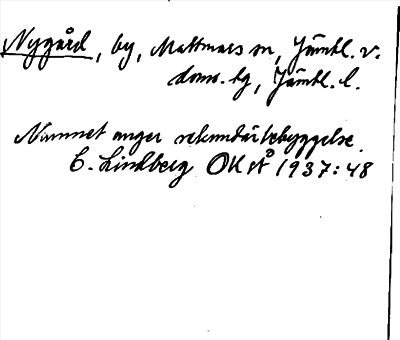 Nygård, by, Mattmars sn, Jämtl. v.
doms. tg, Jämtl. l.
Namnet anger sekundärbebyggelse.
C. Lindberg OKÅ 1937:48